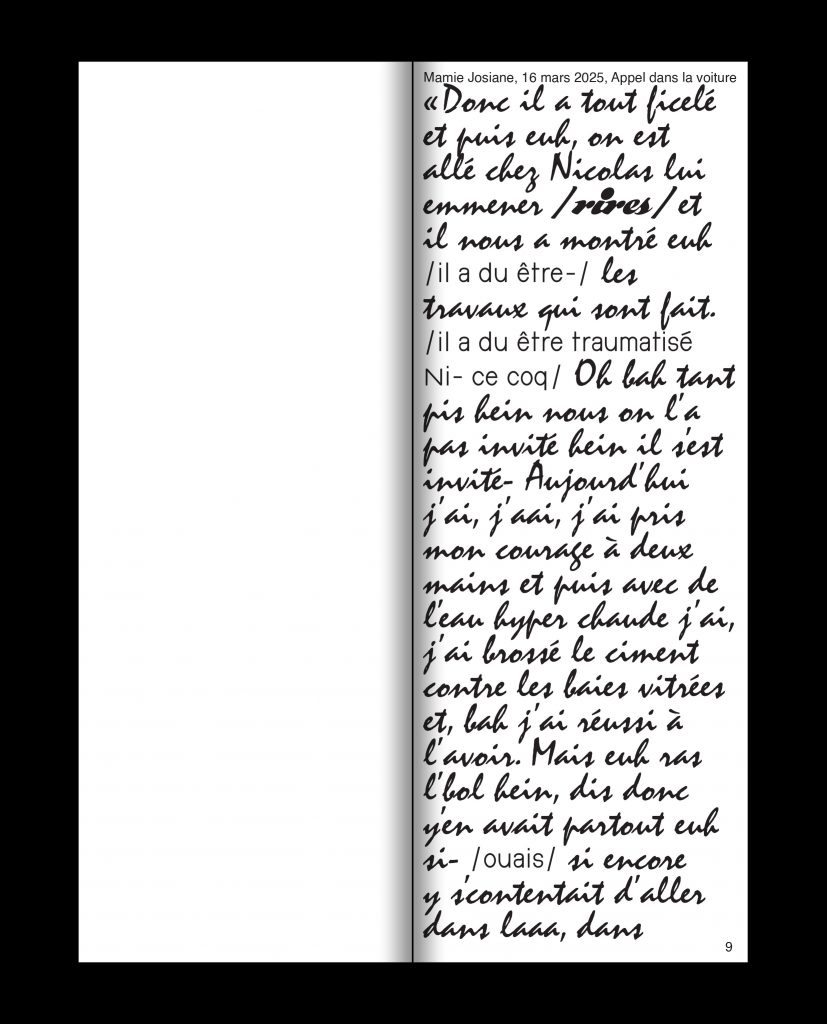 Mamie Josiane, 16 mars 2025, Appel dans la voiture
«Donc il a tout ficelé
et puis euh, on est
allé chez Nicolas lui
emmener /rires/ et
il nous a montré euh
/il a du être-/ les
travaux qui sont fait.
/il a du être traumatisé
Ni- ce coq/ Oh bah tant
pis hein nous on l'a
pas invité hein il s'est
invité- Aujourd'hui
j'ai, j'aai, j'ai pris
mon courage à deux
mains et puis avec de
l'eau hyper chaude j'ai,
j'ai brossé le ciment
contre les baies vitrées
et, bah j'ai réussi à
l'avoir. Mais euh ras
l'bol hein, dis donc
y'en avait partout euh
si- /ouais/ si encore
y s'contentait d'aller
dans laaa, dans
9